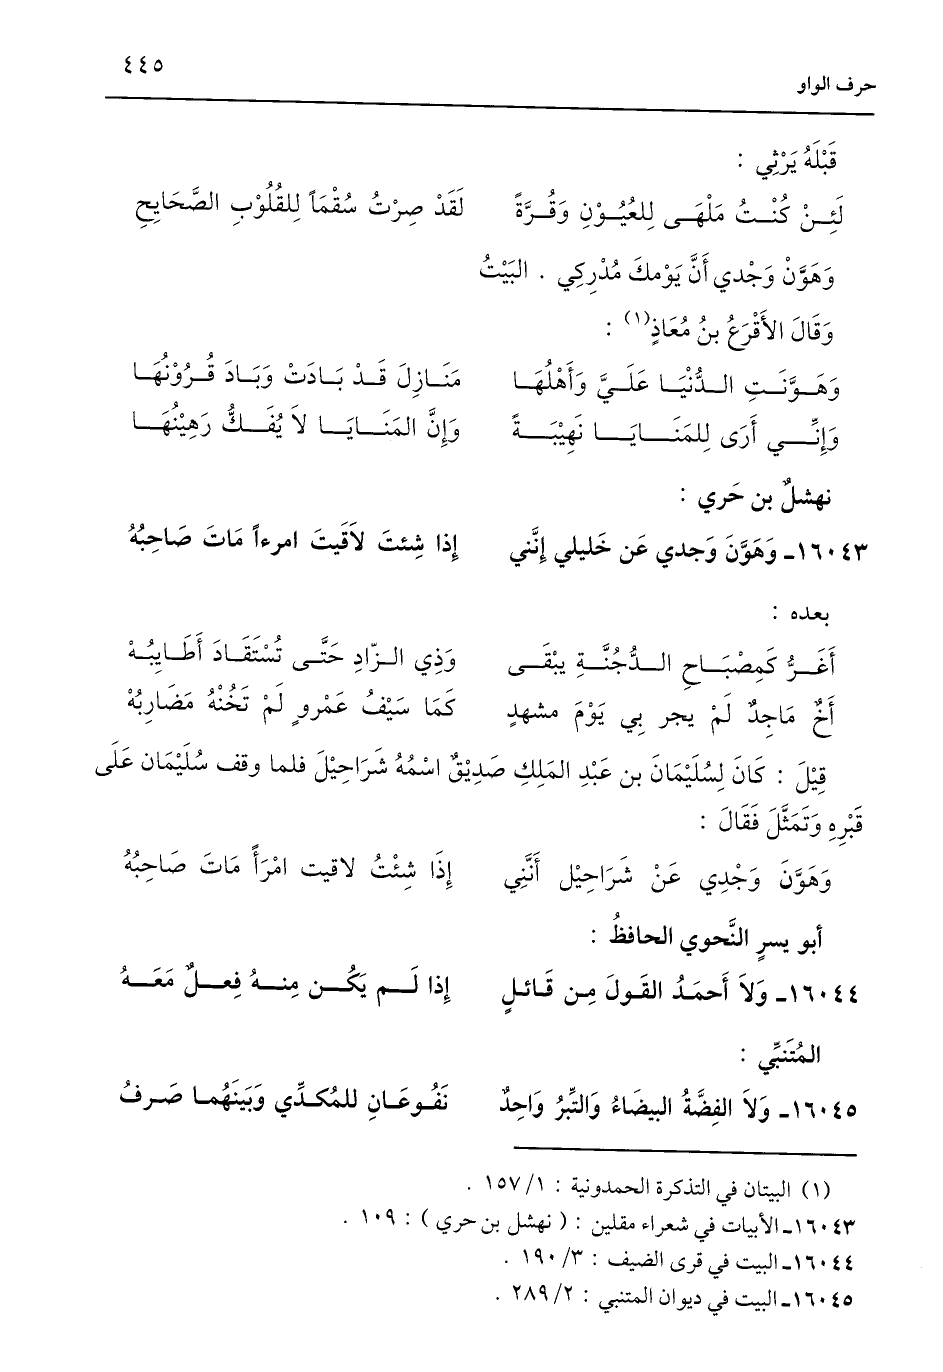 ٤٤٥
حرف الواو
قَبْلَهُ يَرْثِي :
لَئِنْ كُنْتُ مَلْهَى لِلعُيُوْنِ وَقُرَّةً لَقَدْ صِرْتُ سُقْمَاً لِلقُلُوْبِ الصَّحَايِحِ
وَهَوَّنْ وَجْدي أَنَّ يَوْمكَ مُدْرِكِي . البَيْتُ
وَقَالَ الأَقْرَعُ بنُ مُعَاذٍ(١) :
وَهَوَّنَتِ الدُّنْيَا عَلَيَّ وَأَهْلُهَا مَنَازِلَ قَدْ بَادَتْ وَبَادَ قُرُوْنُهَا
وَإِنِّي أَرَى لِلمَنَايَا نَهِيْبَةً وَإِنَّ المَنَايَا لاَ يُفَكُّ رَهِيْنُهَا
نهشلٌ بن حَري :
١٦٠٤٣ـ وَهَوَّنَ وَجدي عَن خَليلي إِنَّني إِذا شِئتَ لاَقَيتَ امرءاً مَاتَ صَاحِبُهُ
بعده :
أَغَرُّ كَمِصْبَاحِ الدُّجُنَّةِ يبْقَى وَذِي الزّادِ حَتَّى تُسْتَقَادَ أَطَايِبُهْ
أَخٌ مَاجِدٌ لَمْ يجر بي يَوْمَ مشهدٍ كَمَا سَيْفُ عَمْروٍ لَمْ تَخُنْهُ مَضَارِبُهْ
قِيْلَ : كَانَ لِسُلَيْمَانَ بن عَبْدِ المَلِكِ صَدِيْقٌ اسْمُهُ شَرَاحِيْلَ فلما وقف سُلَيْمَان عَلَى
قَبْرِهِ وَتَمَثَّلَ فَقَالَ :
وَهَوَّنَ وَجْدِي عَنْ شَرَاحِيْل أَنَّنِي إِذَا شِئْتُ لاقيت امْرَأً مَاتَ صَاحِبُهُ
أبو يسرٍ النَّحوي الحافظُ :
١٦٠٤٤ـ وَلاَ أَحمَدُ القَولَ مِن قَائلٍ إِذا لَم يَكُن مِنهُ فِعلٌ مَعَهُ
المُتَنَبِّي :
١٦٠٤٥ـ وَلاَ الفِضَّةُ البيضَاءُ وَالتِّبرُ وَاحِدٌ نَفُوعَانِ للمُكدِّي وَبَينَهُما صَرفُ
(١) البيتان في التذكرة الحمدونية : ١/ ١٥٧ .
١٦٠٤٣ـ الأبيات في شعراء مقلين : ( نهشل بن حري ) : ١٠٩ .
١٦٠٤٤ـ البيت في قرى الضيف : ٣/ ١٩٠ .
١٦٠٤٥ـ البيت في ديوان المتنبي : ٢/ ٢٨٩ .